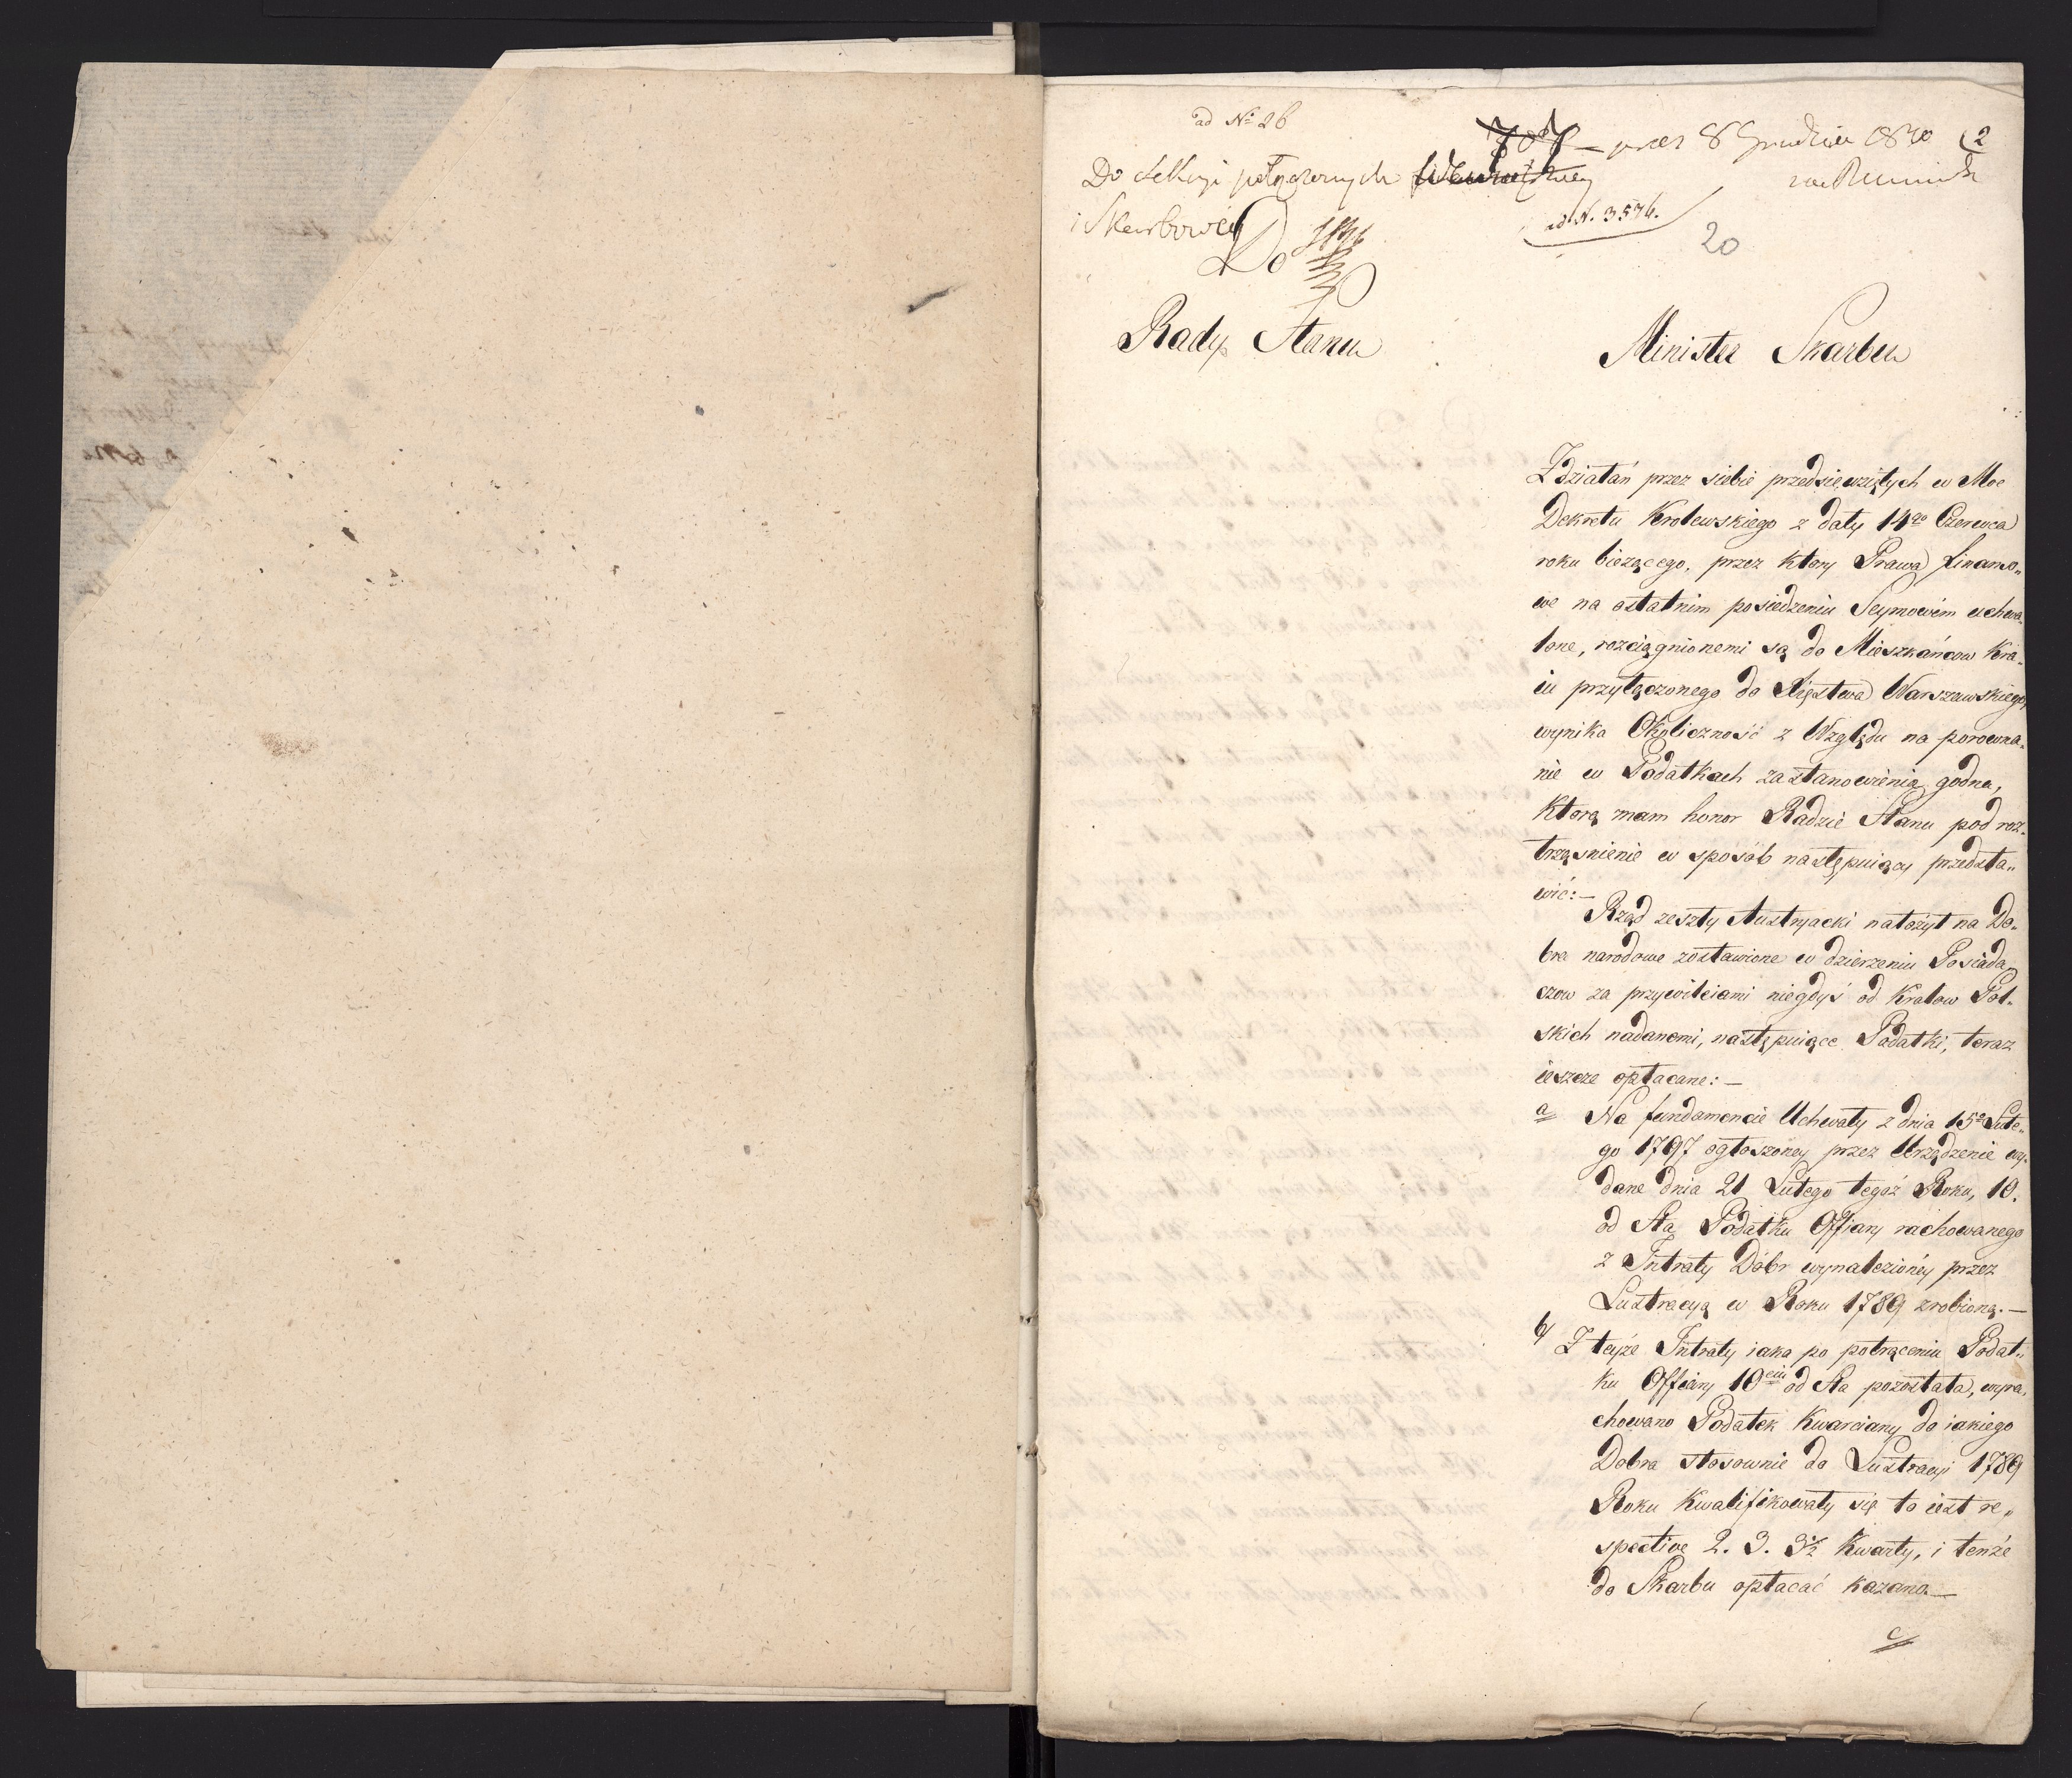 ad No 26
707 — prez 8 Grudnia 1810
2
Do sekcyi połączonych
i Skarbowéy
ad N. 3576.
20
Do
Rady Stanu
Minister Skarbu
Z działań przez siebie przedsięwziętych w Moc
Dekretu Krolewskiego z daty 14go Czerwca
roku bieżącego, przez ktory Prawa finanso„
we na ostatnim posiedzeniu Seymowém uchwa„
lone, rozciągnionemi są do Mieszkańcow Kra„
iu przyłączonego do Xięstwa Warszawskiego,
wynika Okoliczność z Względu na porowna„
nie w Podatkach zastanowienia godna,
Ktorą mam honor Radzie Stanu pod roz„
trząśnienie w sposób następuiący przedsta„
wić: —
Rząd zeszły Austryacki nałożył na Do„
bra narodowe zostawione w dzierzeniu Posiada„
czow za przywileiami niegdyś od Krolow Pol„
skich nadanemi, następuiące Podatki, teraz
ieszcze opłacane: —
a Na fundamencie Uchwały z dnia 15o Lute„
go 1797 ogłoszoney przez Urządzenie wy„
dane dnia 21 Lutego tegoż Roku, 10.
od Sta Podatku Offiary rachowanego
z Intraty Dóbr wynalezionéy przez
Lustracyą w Roku 1789 zrobioną. —
b/ Z teyże Intraty iaka po potrąceniu Podat„
ku Offiary 10ciu od Sta pozostała, wyra„
chowano Podatek Kwarciany do iakiego
Dobra stosownie do Lustracyi 1789
Roku Kwalifikowały się to iest re„
spective 2. 3. 3½ Kwarty, i tenże
do Skarbu opłacać kazano. —
c/